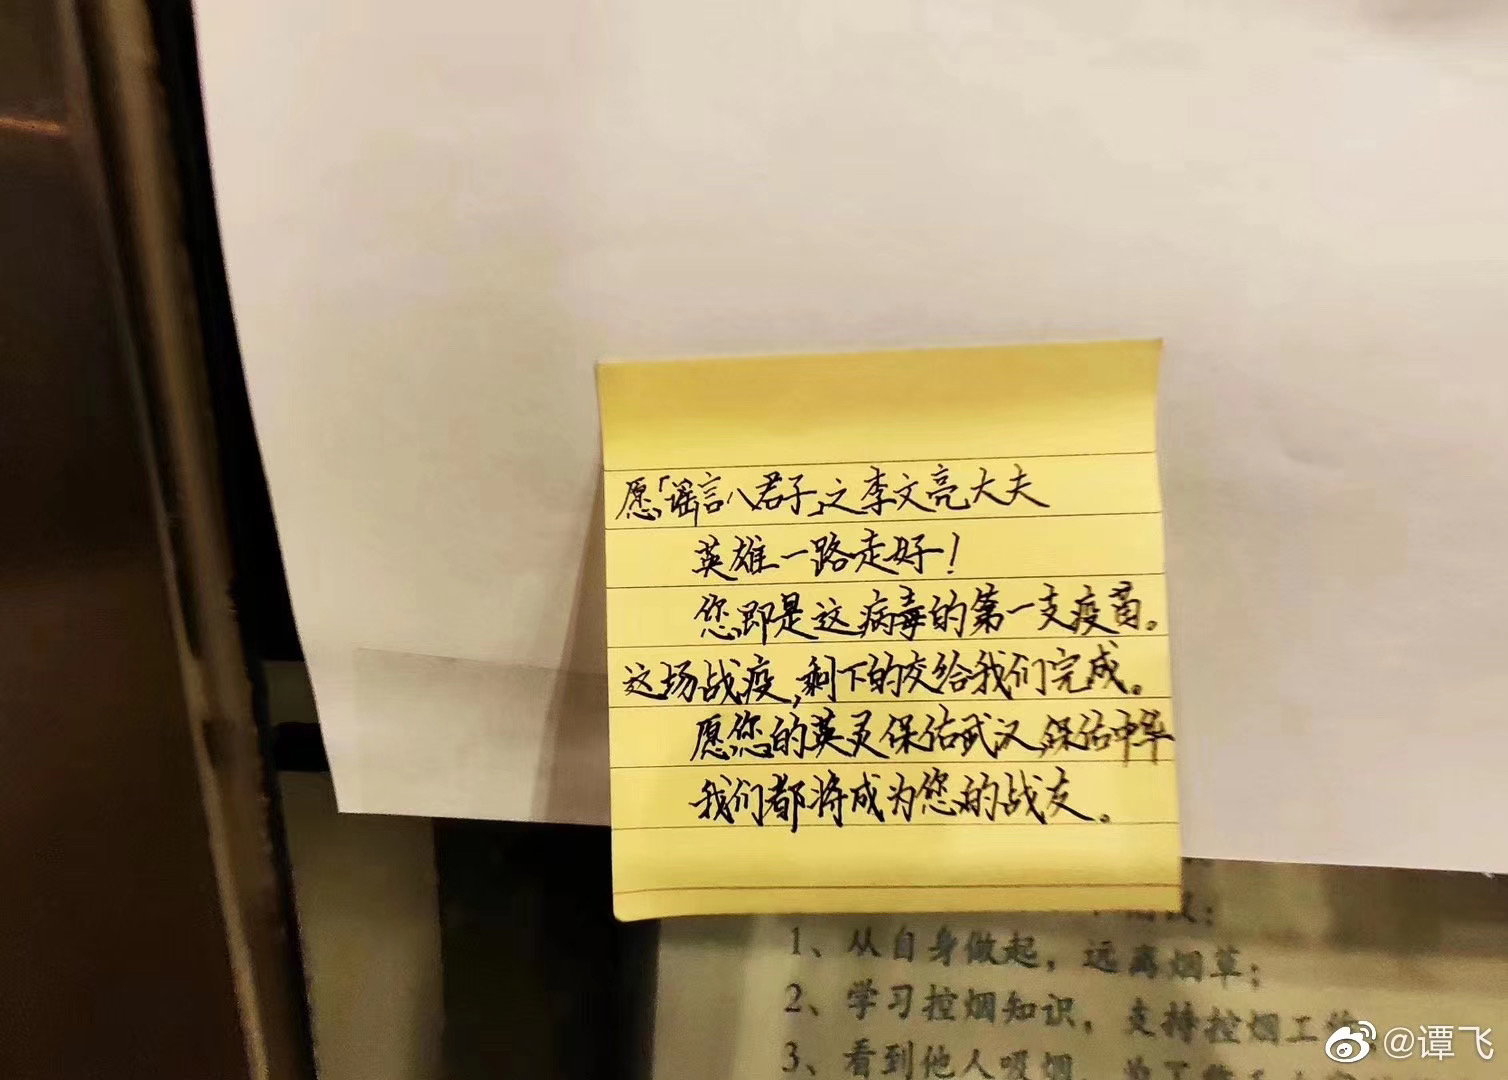 愿「谣言八君子」之李文亮大夫
英雄一路走好！
您即是这病毒的第一支疫苗。
这场战疫,剩下的交给我们完成。
愿您的英灵保佑武汉,保佑中华
我们都将成为您的战友。
1、从自身做起，远离烟草；
2、学习控烟知识，支持控烟工
3、看到他人吸烟
@谭飞